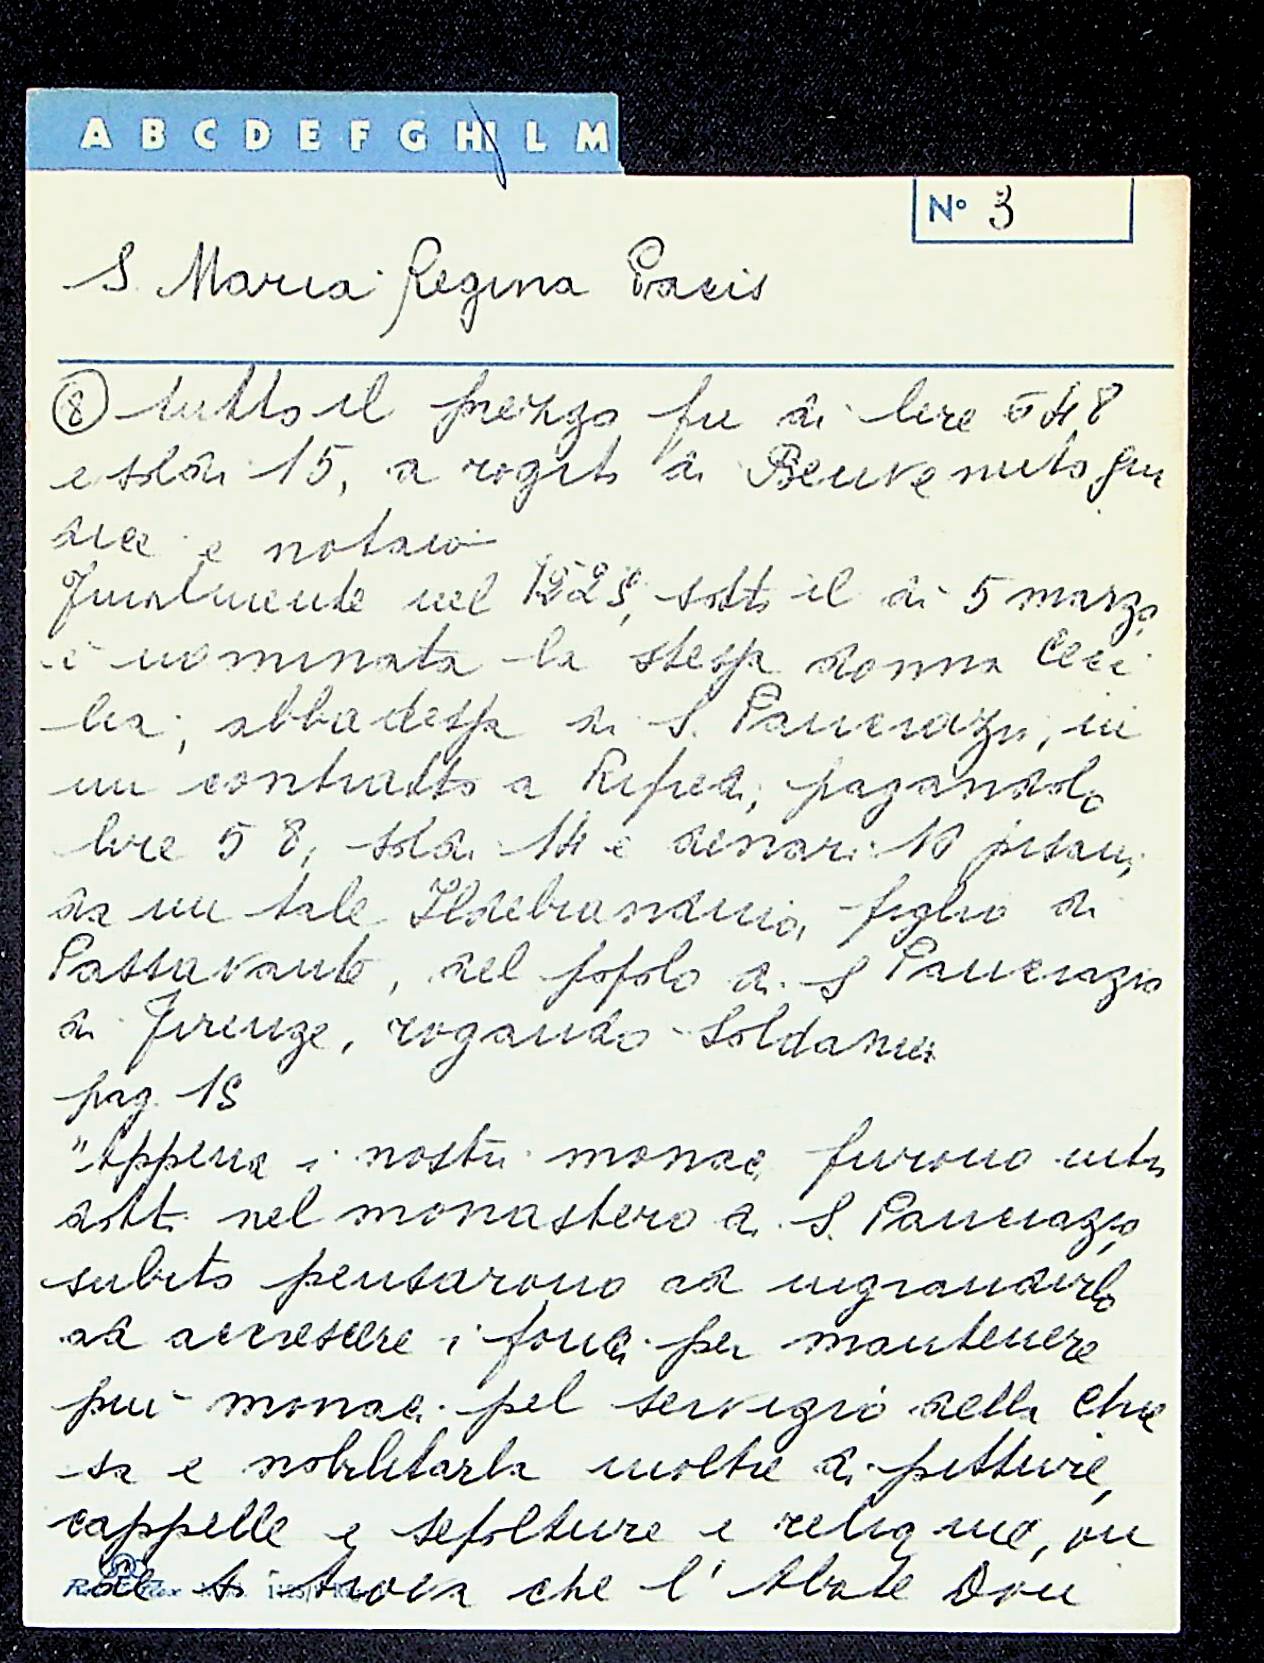 A B C D E F G H I L M
Nº 3
S. Maria Regina Pacis
⑧ tutto il prezzo fu di lire 548
e soldi 15, a rogito di Benvenuto giu
dice e notaio
Finalmente nel sotto il dì 5 marzo,
è nominata la stessa donna Ceci
lia, abbadessa di S. Pancrazio, in
un contratto a Rifredi, pagandolo
lire 58, soldi 14 e denari 10 pisani,
da un tale Ildebrandino, figlio di
Passavante, del popolo di S Pancrazio
di Firenze, rogando Soldanieri
pag. 19
"Appena i nostri monaci furono intro
dotti nel monastero di S. Pancrazio,
subito pensarono ad ingrandirlo
ad accrescere i fondi per mantenere
più monaci pel servizio della Chie
sa e nobilitarla inoltre di pitture,
cappelle e sepolture e reliquie, on
de si trova che l'Abate Don